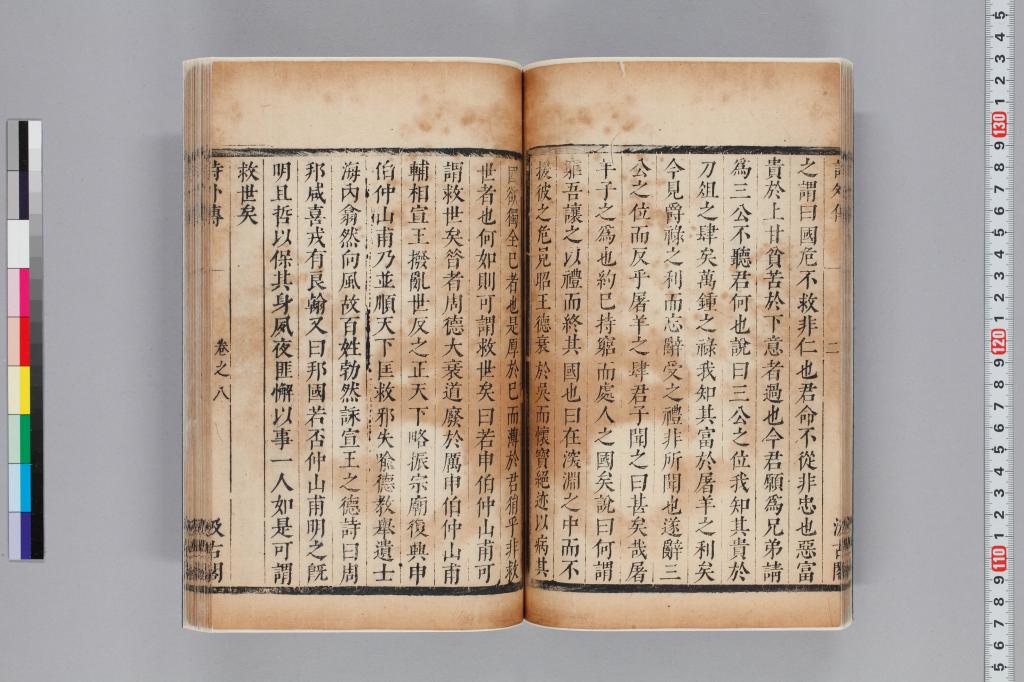 詩外傳 二 汲古閣
之謂曰國危不救非仁也君命不從非忠也惡富
貴於上甘貧苦於下意者過也今君願爲兄弟請
爲三公不聽君何也說曰三公之位我知其貴於
刀俎之肆矣萬鍾之祿我知其富於屠羊之利矣
今見爵祿之利而忘辭受之禮非所聞也遂辭三
公之位而反乎屠羊之肆君子聞之曰甚矣哉屠
羊子之爲也約已持窮而處人之國矣說曰何謂
窮吾讓之以禮而終其國也曰在深淵之中而不
援彼之危見昭王德衰於吳而懷寶絕迹以病其
國欲獨全已者也是厚於已而薄於君狷乎非救
世者也何如則可謂救世矣曰若申伯仲山甫可
謂救世矣昔者周德大衰道廢於厲申伯仲山甫
輔相宣王撥亂世反之正天下略振宗廟復興申
伯仲山甫乃並順天下匡救邪失喻德教舉遺士
海內翕然向風故百姓勃然詠宣王之德詩曰周
邦咸喜戎有良翰又曰邦國若否仲山甫明之旣
明且哲以保其身夙夜匪懈以事一人如是可謂
救世矣
詩外傳 卷之八 汲古閣